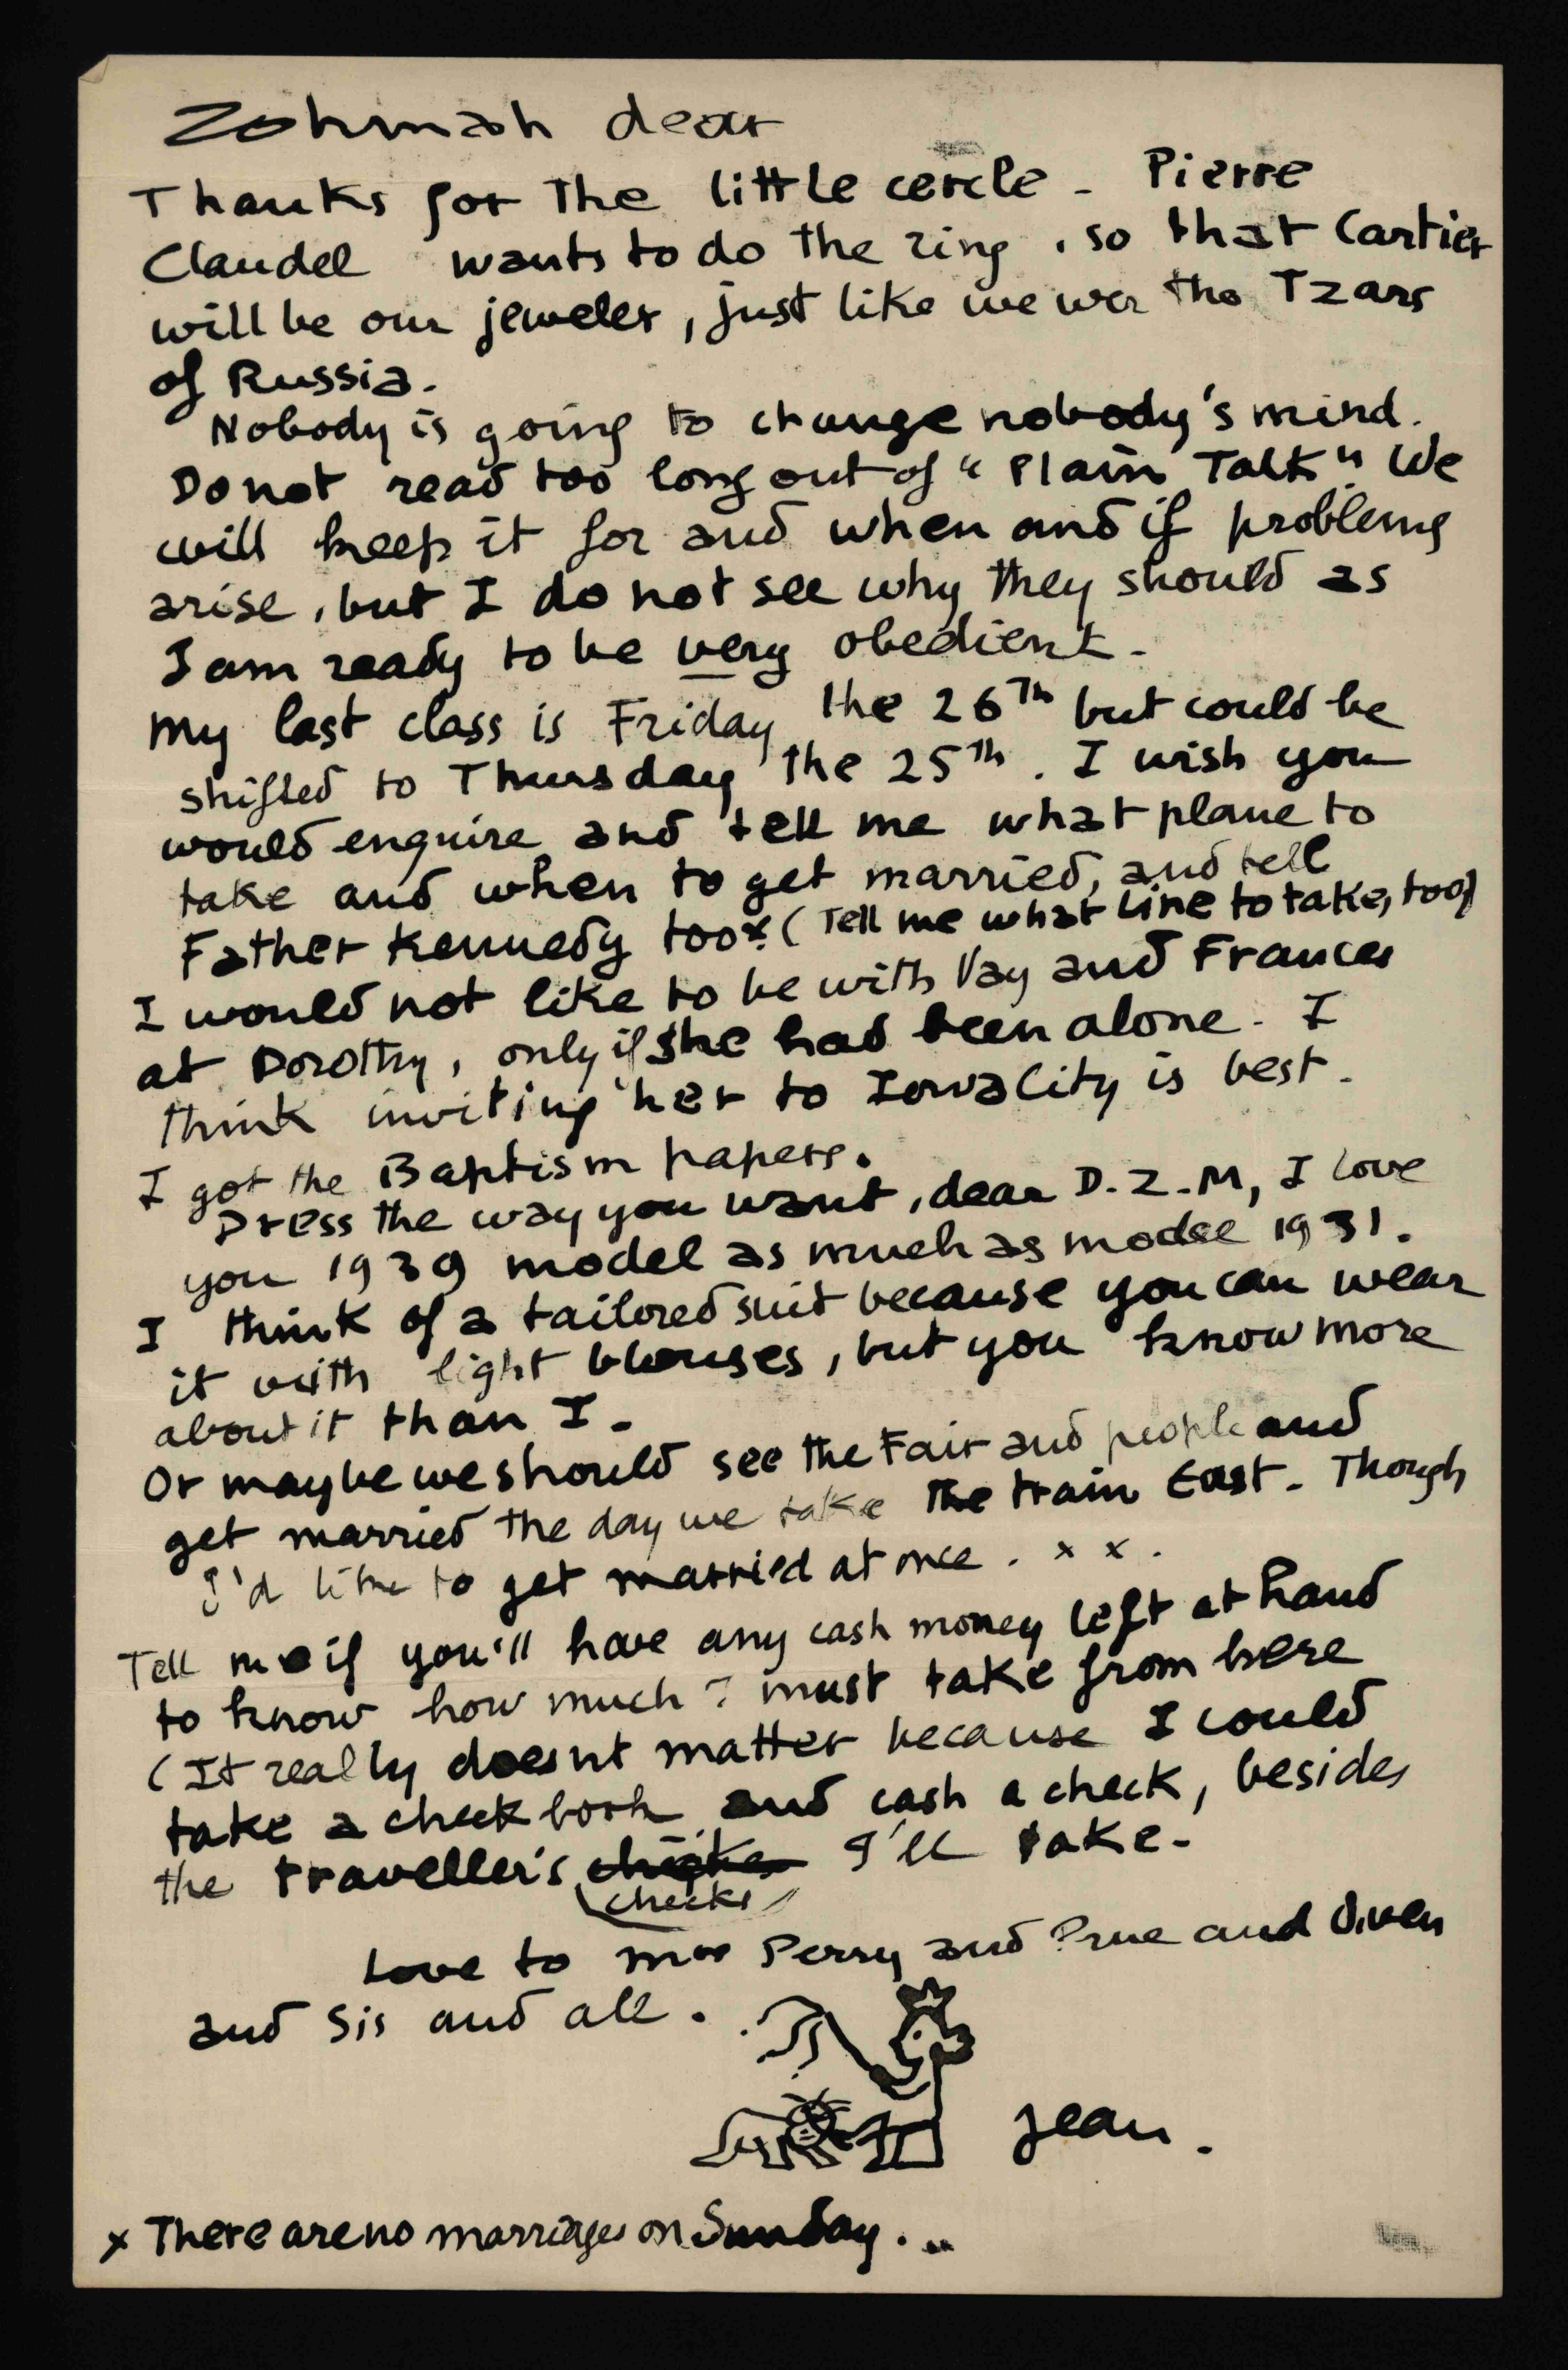 Zohmah dear
Thanks for the little cercle - Pierre
Claudel wants to do the ring, so that Cartier
will be our jeweler, just like we wer the Tzars
of Russia.
Nobody is going to change nobody's mind.
Do not read too long out of "Plain Talk". We
will keep it for and when and if problems
arise, but I do not see why they should as
I am ready to be very obedient.
my last class is Friday the 26Th but could be
shifted to Thursday the 25th. I wish you
would enquire and tell me what plane to
take and when to get married, and tell
Father Kennedy too x. (Tell me what line to take, too)
I would not like to be with Vay and Frances
at Dorothy, only if she had been alone. I
think inviting her to Iowa City is best.
I got the Baptism papers.
Dress the way you want, dear D.Z.M, I love
you 1939 model as much as model 1931.
I think of a tailored suit because you can wear
it with light blouses, but you know more
about it than I.
Or maybe we should see the Fair and people and
get married the day we take the train East. Though
I'd like to get married at once. x x.
Tell me if you'll have any cash money left at hand
to know how much I must take from here
(It really doesnt matter because I could
take a check book and cash a check, besides
the traveller's checks I'll take.
Love to Mrs Perry and Prue and Owen
and Sis and all.
Jean.
x There are no marriages on Sunday...